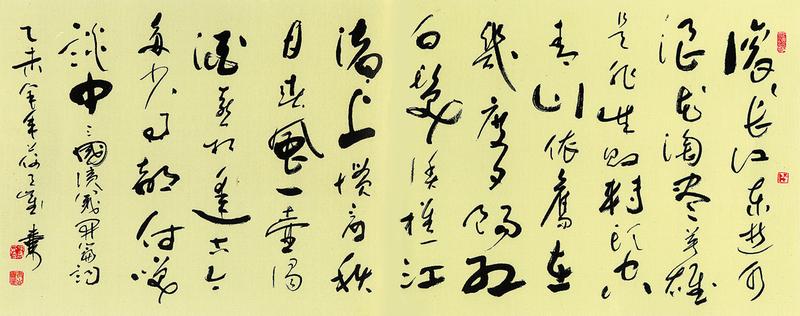 滚滚长江东逝水
浪花淘尽英雄
是非成败转头空
青山依旧在
几度夕阳红
白髮渔樵江
渚上惯看秋
月春风一壶浊
酒喜相逢古今
多少事都付笑
谈中 三國演义开篇词
乙未